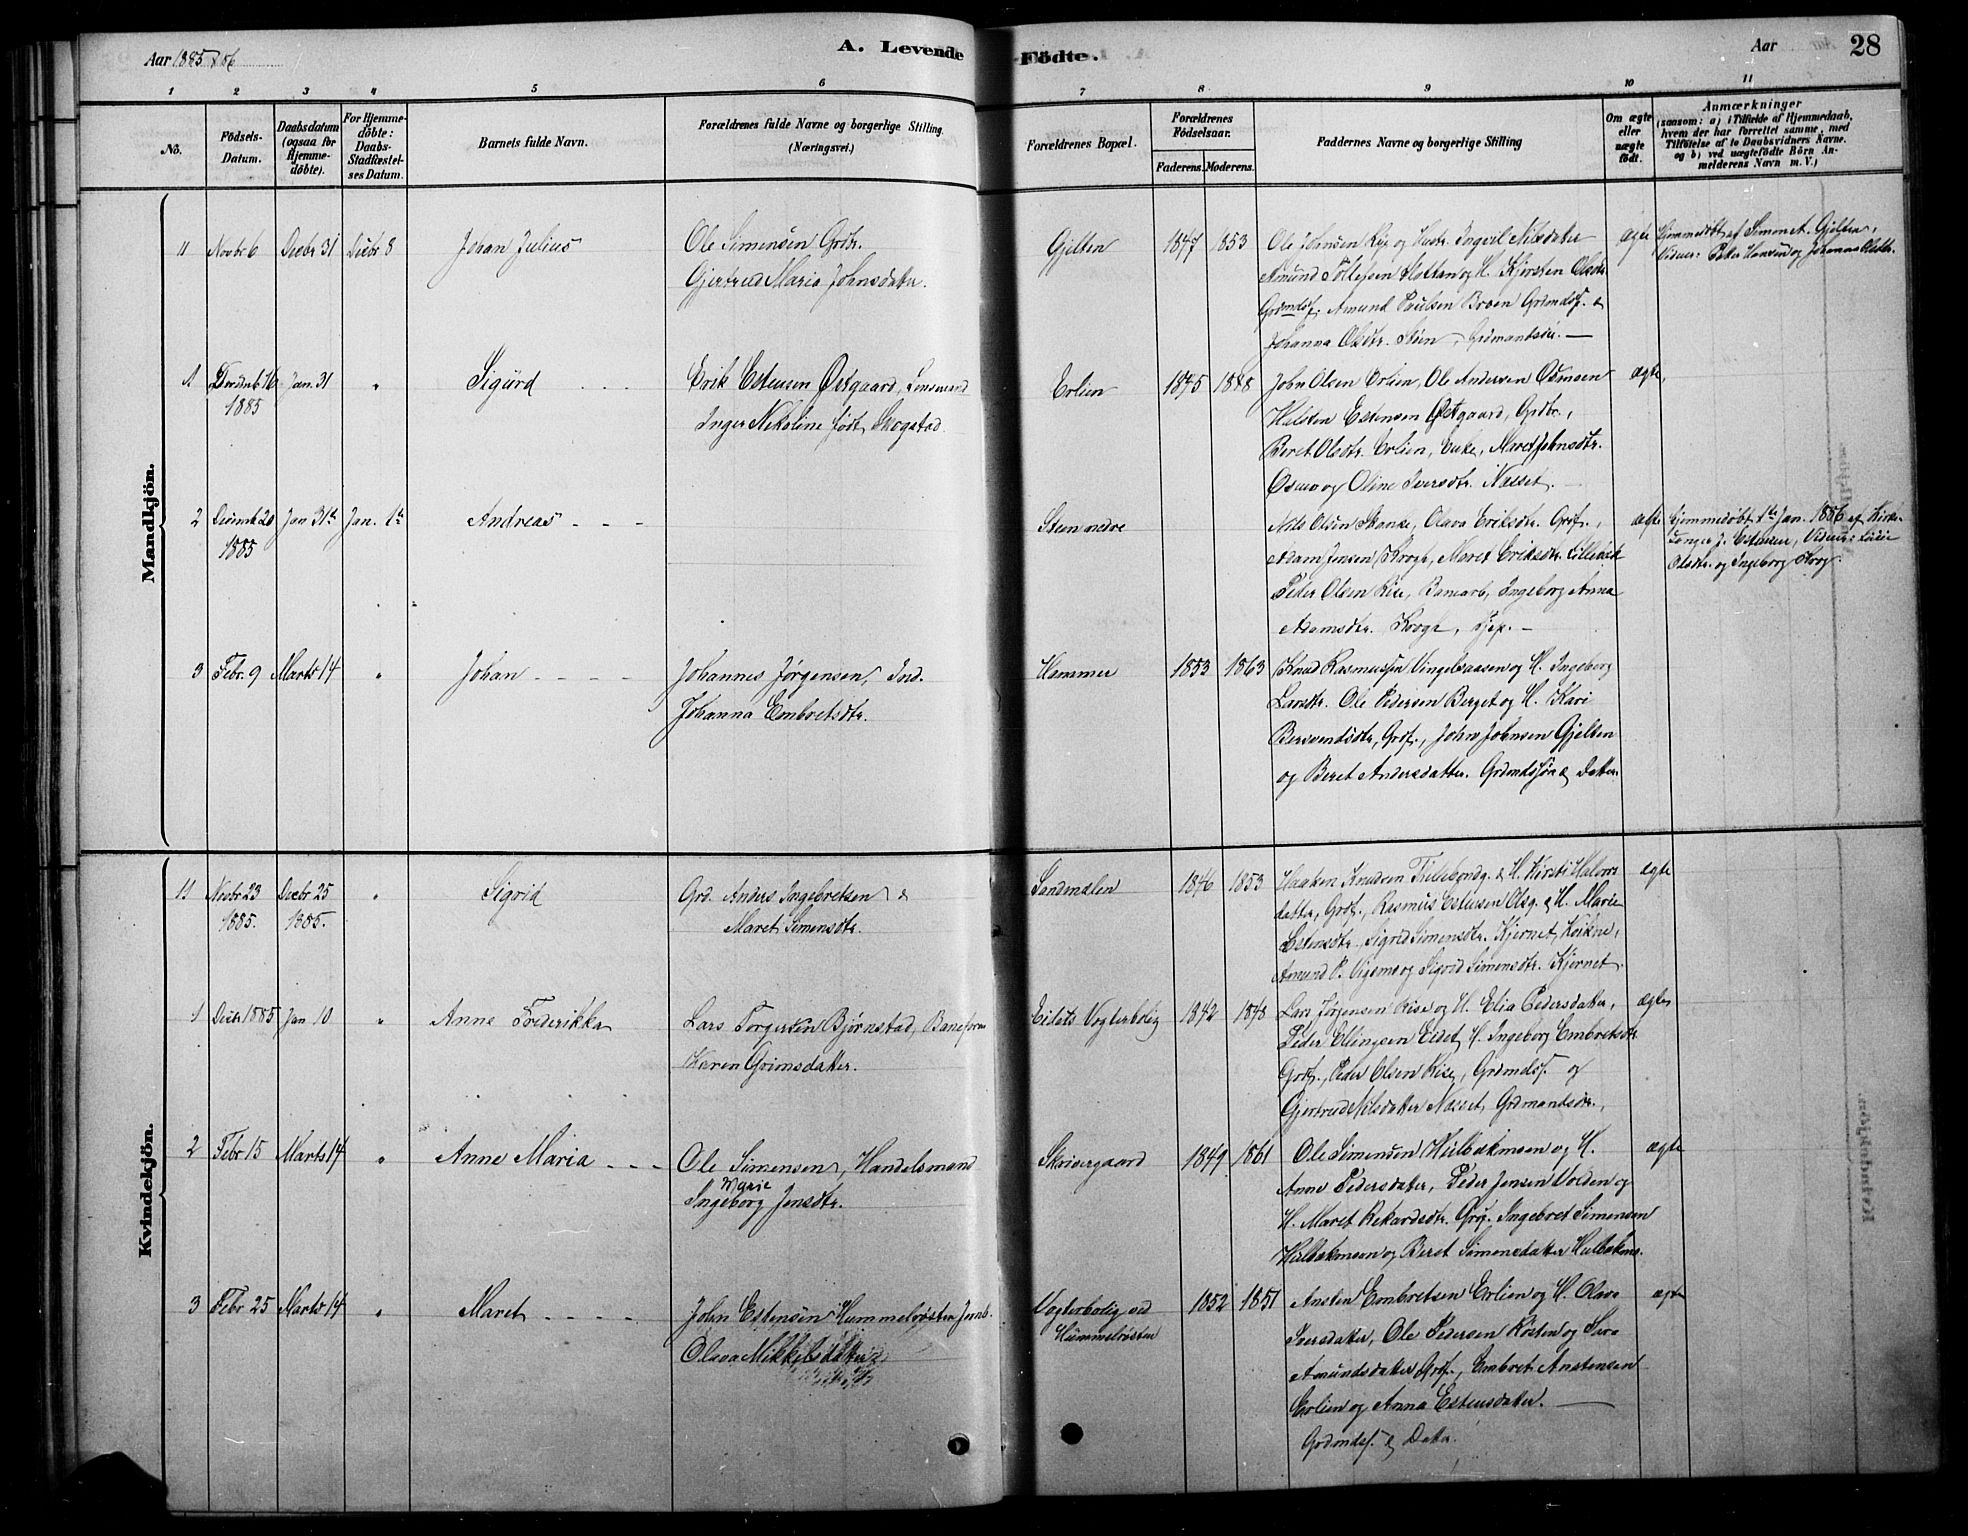 Aar 1885 & 86
A. Levende Födte.
Aar
28
1 2 3 4 5 6 7 8 9 10 11
No.
Födsels-
Datum.
Daabsdatum
(ogsaa for
Hjemme-
døbte).
For Hjemme-
døbte:
Daabs-
Stadfæstel-
ses Datum.
Barnets fulde Navn.
Forældrenes fulde Navne og borgerlige Stilling.
(Næringsvei.)
Forældrenes Bopæl.
Forældrenes
Födselsaar.
Faderens. Moderens.
Faddernes Navne og borgerlige Stilling
Om ægte
eller
uægte
födt.
Anmærkninger
(saasom: a) i Tilfælde af Hjemmedaab,
hvem der har forrettet samme, med
Tilföielse af to Daabsvidners Navne.
og b) ved uægtefödte Börn An-
melderens Navn m. V.)
Mandkjön.
11 Novbr 6 Decbr 31 Decbr 8 Johan Julius
Ole Simensen Grdbr.
Gjertrud Maria Johnsdatter.
Gjelten 1847 1853
Ole Johnsen Rise og Hustr. Ingvil Nilsdatter
Amund Tollefsen Slottan og H. Kjersten Olsdtr.
Grdmdsf. Amund Paulsen Broen Grdmdsf. &
Johanna Olsdtr. Steen, Grdmandsdtr. —
ægte
Hjemmedøbt af Simon E. Gjelten,
Vidner: Peter Hansen og Johanna Olsdtr.
1 Decemb. 16 Jan. 31 " Sigurd
1885
Erik Estensen Østgaard, Lensmand
Inger Nikoline født Skogstad.
Erlien 1845 1848
John Olsen Erlien, Ole Andersen Osmoen
Halsten Estensen Østgaard, Grdbr.,
Beret Olsdtr. Erlien, Enke, Maret Johnsdtr.
Osmo og Oline Iversdtr. Næsset.
ægte
2 Decemb 20 Jan 31te Jan. 1te Andreas - - -
1885
Steen nedre
Nils Olsen Skanke, Olava Eriksdtr. Grdf.,
Adam Jensen Krogh, Maret Eriksdtr. Lillevik
Peder Olsen Rise, Banearb, Ingeborg Anna
Adamsdtr. Krogh, Tjep. —
ægte
Hjemmedøbt 1te Jan. 1886 af Kirke-
sanger J. Estensen, Vidner:
Olsdtr. og Ingeborg Krog.
3 Febr. 9 Marts 14 " Johan - - - -
Johannes Jørgensen, Ind.
Johanna Embretsdtr.
Hammer 1853 1863
Knud Rasmussen Vingelsaasen og H. Ingeborg
Larsdtr. Ole Pedersen Berget og H. Kari
Bersvendsdtr, Grdf., John Johnsen Gjelten
og Beret Andersdatter. Grdmdssøn & Datter.
Kvindekjön.
11 Novbr 23 Decbr 25 " Sigrid
1885. 1885.
Grd. Anders Ingebretsen &
Maret Simensdtr.
Sandmælen 1846 1853
Haaken Knudsen &. H. Kirsti Halvors
datter, Grdf., Rasmus Estensen & H. Marie
Estensdtr., Sigrid Simensdtr. Kjernet, Kvikne,
Amund P. Vigemo og Sigrid Simensdtr. Kjernet.
ægte
1 Decbr 1885 Jan 10 " Anne Frederikka
Lars Torgersen Bjørnstad, Baneform
Karen Grimsdatter.
Eidets Vogterbolig 1842 1848
Lars Jørgensen Rise og H. Elia Pedersdatter,
Peder Ellingsen Eidet, H. Ingeborg Embretsdtr
Grdf., Peder Olsen Rise, Grdmdsf. og
Gjertrud Nilsdatter Næsset, Grdmandsdtr.,
ægte
2 Febr 15 Marts 14 " Anne Maria - - -
Ole Simensen, Handelsmand
Marie
Ingeborg Jensdtr.
Skrivergaard 1849 1861
Ole Simensen Hulbækmoen og H.
Anne Pedersdatter, Peder Jensen Volden og
H. Maret Rekardsdtr. Grdf. Ingebret Simensen
Hulbækmoen og Beret Simensdatter Hulbækm.
ægte
3 Febr 25 Marts 14 " Maret - - - -
John Estensen Hummelrøsten Jernb.
Olava Mikkelsdatter
Vogterbolig ved
Hummelrøsten
1852 1851
Ansten Embretsen Erlien og H. Olava
Iversdatter, Ole Pedersen Røsten og Sara
Amundsdatter Grdf., Embret Anstensen
Erlien og Anna Estensdatter. —
Grdmdsf. & Datter.
ægte